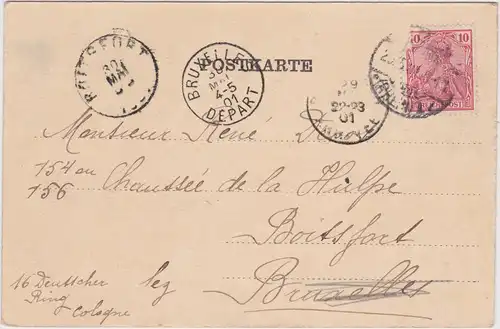 POSTKARTE
BOITSFORT
30
MAI
BRUXELLES
30
MAI
4-5
01
DÉPART
29
22-23
01
10
10
Monsieur René
154 ou
156
Chaussée de la Hulpe
Boitsfort
lez
Bruxelles
16 Deutscher
Ring
Cologne